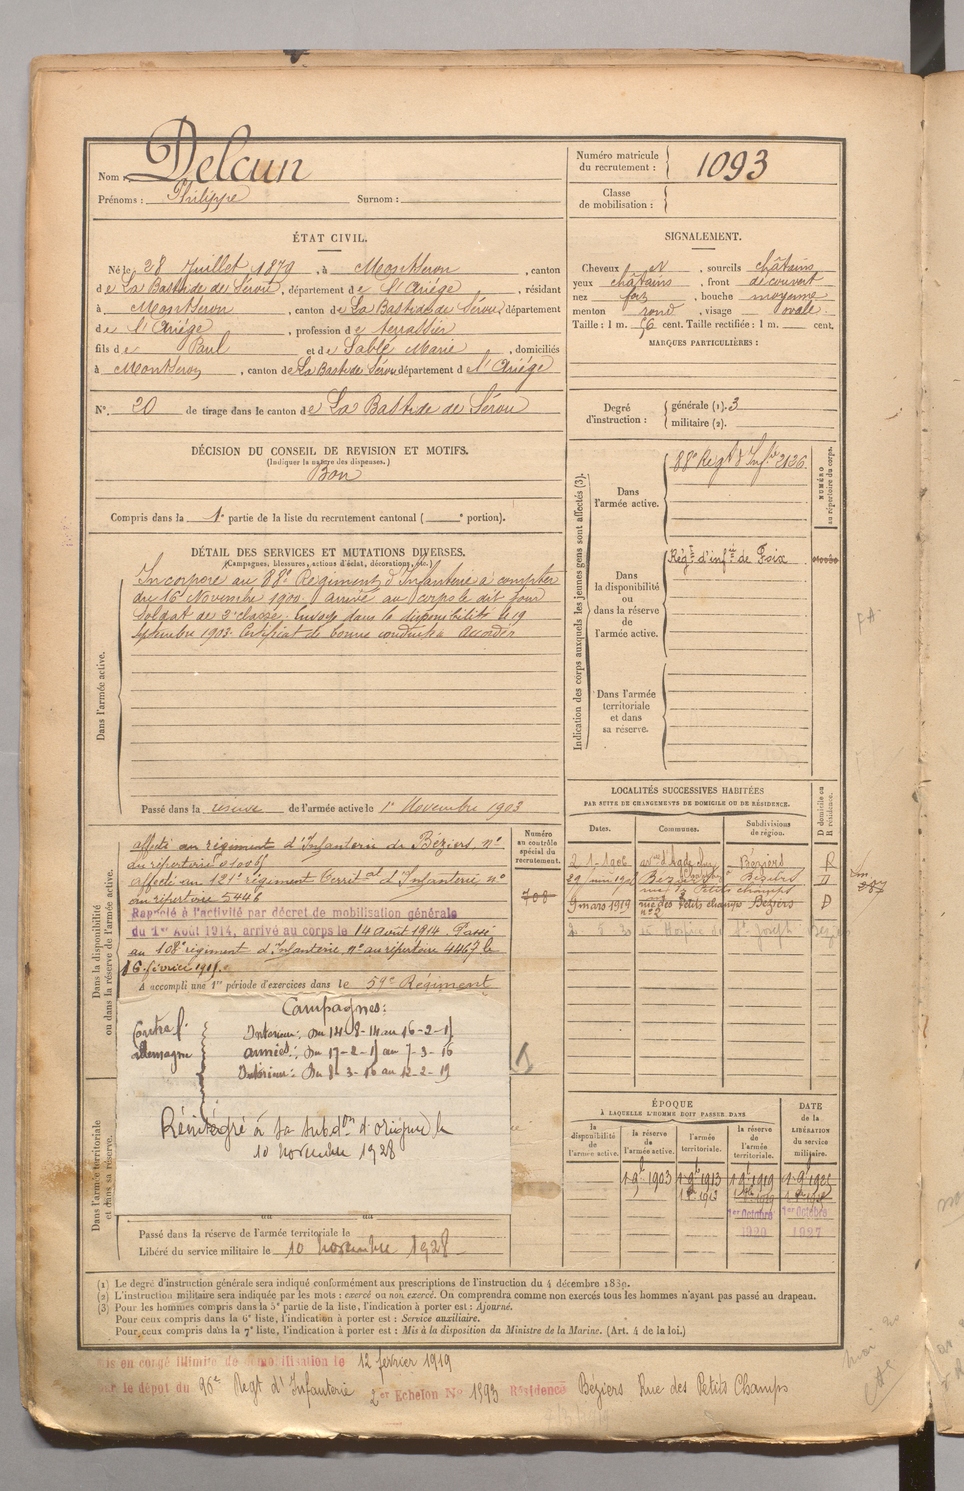 Nom : Delcun
Prénoms : Philippe Surnom :
Numéro matricule du recrutement : 1093
Classe de mobilisation :
ÉTAT CIVIL.
Né le 28 Juillet 1879, à Montseron, canton
de La Bastide de Sérou, département de l'Ariége, résidant
à Montseron, canton de La Bastide de Sérou, département
de l'Ariége, profession de terrassier
fils de Paul et de Sablé Marie, domiciliés
à Montseron, canton de La Bastide Sérou département de l'Ariége
N°. 20 de tirage dans le canton de La Bastide de Sérou
SIGNALEMENT.
Cheveux et, sourcils châtains
yeux châtains, front découvert
nez fort, bouche moyenne
menton rond, visage ovale.
Taille : 1 m. 56 cent. Taille rectifiée : 1 m. cent.
MARQUES PARTICULIÈRES :
Degré d'instruction : générale (1). 3
militaire (2).
DÉCISION DU CONSEIL DE REVISION ET MOTIFS.
(Indiquer la nature des dispenses.)
Bon
Compris dans la 1e partie de la liste du recrutement cantonal ( e portion).
DÉTAIL DES SERVICES ET MUTATIONS DIVERSES.
(Campagnes, blessures, actions d'éclat, décorations, etc.)
Dans l'armée active.
Incorporé au 88e Régiment d'Infanterie à compter
du 16 Novembre 1900. arrivé au corps le dit jour
Soldat de 2e classe. Envoyé dans la disponibilité le 19
Septembre 1903. Certificat de bonne conduite accordé
Passé dans la réserve de l'armée active le 1er Novembre 1903
Indication des corps auxquels les jeunes gens sont affectés (3).
NUMÉRO au répertoire du corps.
Dans l'armée active.
88e Régt d'Infie 2136
Dans la disponibilité ou dans la réserve de l'armée active.
Régt d'infie de Foix
Dans l'armée territoriale et dans sa réserve.
Dans la disponibilité ou dans la réserve de l'armée active.
affecté au régiment d'Infanterie de Béziers, n°
du répertoire 01006
affecté au 121e régiment territal d'Infanterie n°
au répertoire 5446
Rappelé à l'activité par décret de mobilisation générale
du 1er Août 1914, arrivé au corps le 14 août 1914. Passé
au 108e régiment d'Infanterie, n° au répertoire 4467 le
16 février 1915.
A accompli une 1re période d'exercices dans le 59e Régiment
Numéro au contrôle spécial du recrutement.
708
Campagnes :
Contre l'Allemagne
Intérieur : Du 14-8-14 au 16-2-15
armées : Du 17-2-15 au 7-3-16
Intérieur : Du 8-3-16 au 12-2-19
Réintégré à sa subdon d'origine le
10 novembre 1928
Dans l'armée territoriale et dans sa réserve.
Passé dans la réserve de l'armée territoriale le
Libéré du service militaire le 10 novembre 1928
LOCALITÉS SUCCESSIVES HABITÉES
PAR SUITE DE CHANGEMENTS DE DOMICILE OU DE RÉSIDENCE.
Dates. Communes. Subdivisions de région. D domicile ou R résidence.
2-1-1906 Béziers R
Béziers Béziers D
rue des Petits champs
9 mars 1919 rue des Petits champs n° 2 Béziers D
Hospice St Joseph
387
ÉPOQUE
À LAQUELLE L'HOMME DOIT PASSER DANS
la disponibilité de l'armée active. la réserve de l'armée active. l'armée territoriale. la réserve de l'armée territoriale.
DATE de la LIBÉRATION du service militaire.
1 9bre 1903 1 9bre 1913 1 9bre 1919 1 9bre 1925
1er Octobre 1920 1er Octobre 1927
(1) Le degré d'instruction générale sera indiqué conformément aux prescriptions de l'instruction du 4 décembre 1889.
(2) L'instruction militaire sera indiquée par les mots : exercé ou non exercé. On comprendra comme non exercés tous les hommes n'ayant pas passé au drapeau.
(3) Pour les hommes compris dans la 5e partie de la liste, l'indication à porter est : Ajourné.
Pour ceux compris dans la 6e liste, l'indication à porter est : Service auxiliaire.
Pour ceux compris dans la 7e liste, l'indication à porter est : Mis à la disposition du Ministre de la Marine. (Art. 4 de la loi.)
Mis en congé illimité de démobilisation le 12 février 1919
par le dépôt du 96e Regt d'Infanterie 2er Echelon N° 1593 Résidence Béziers Rue des Petits Champs